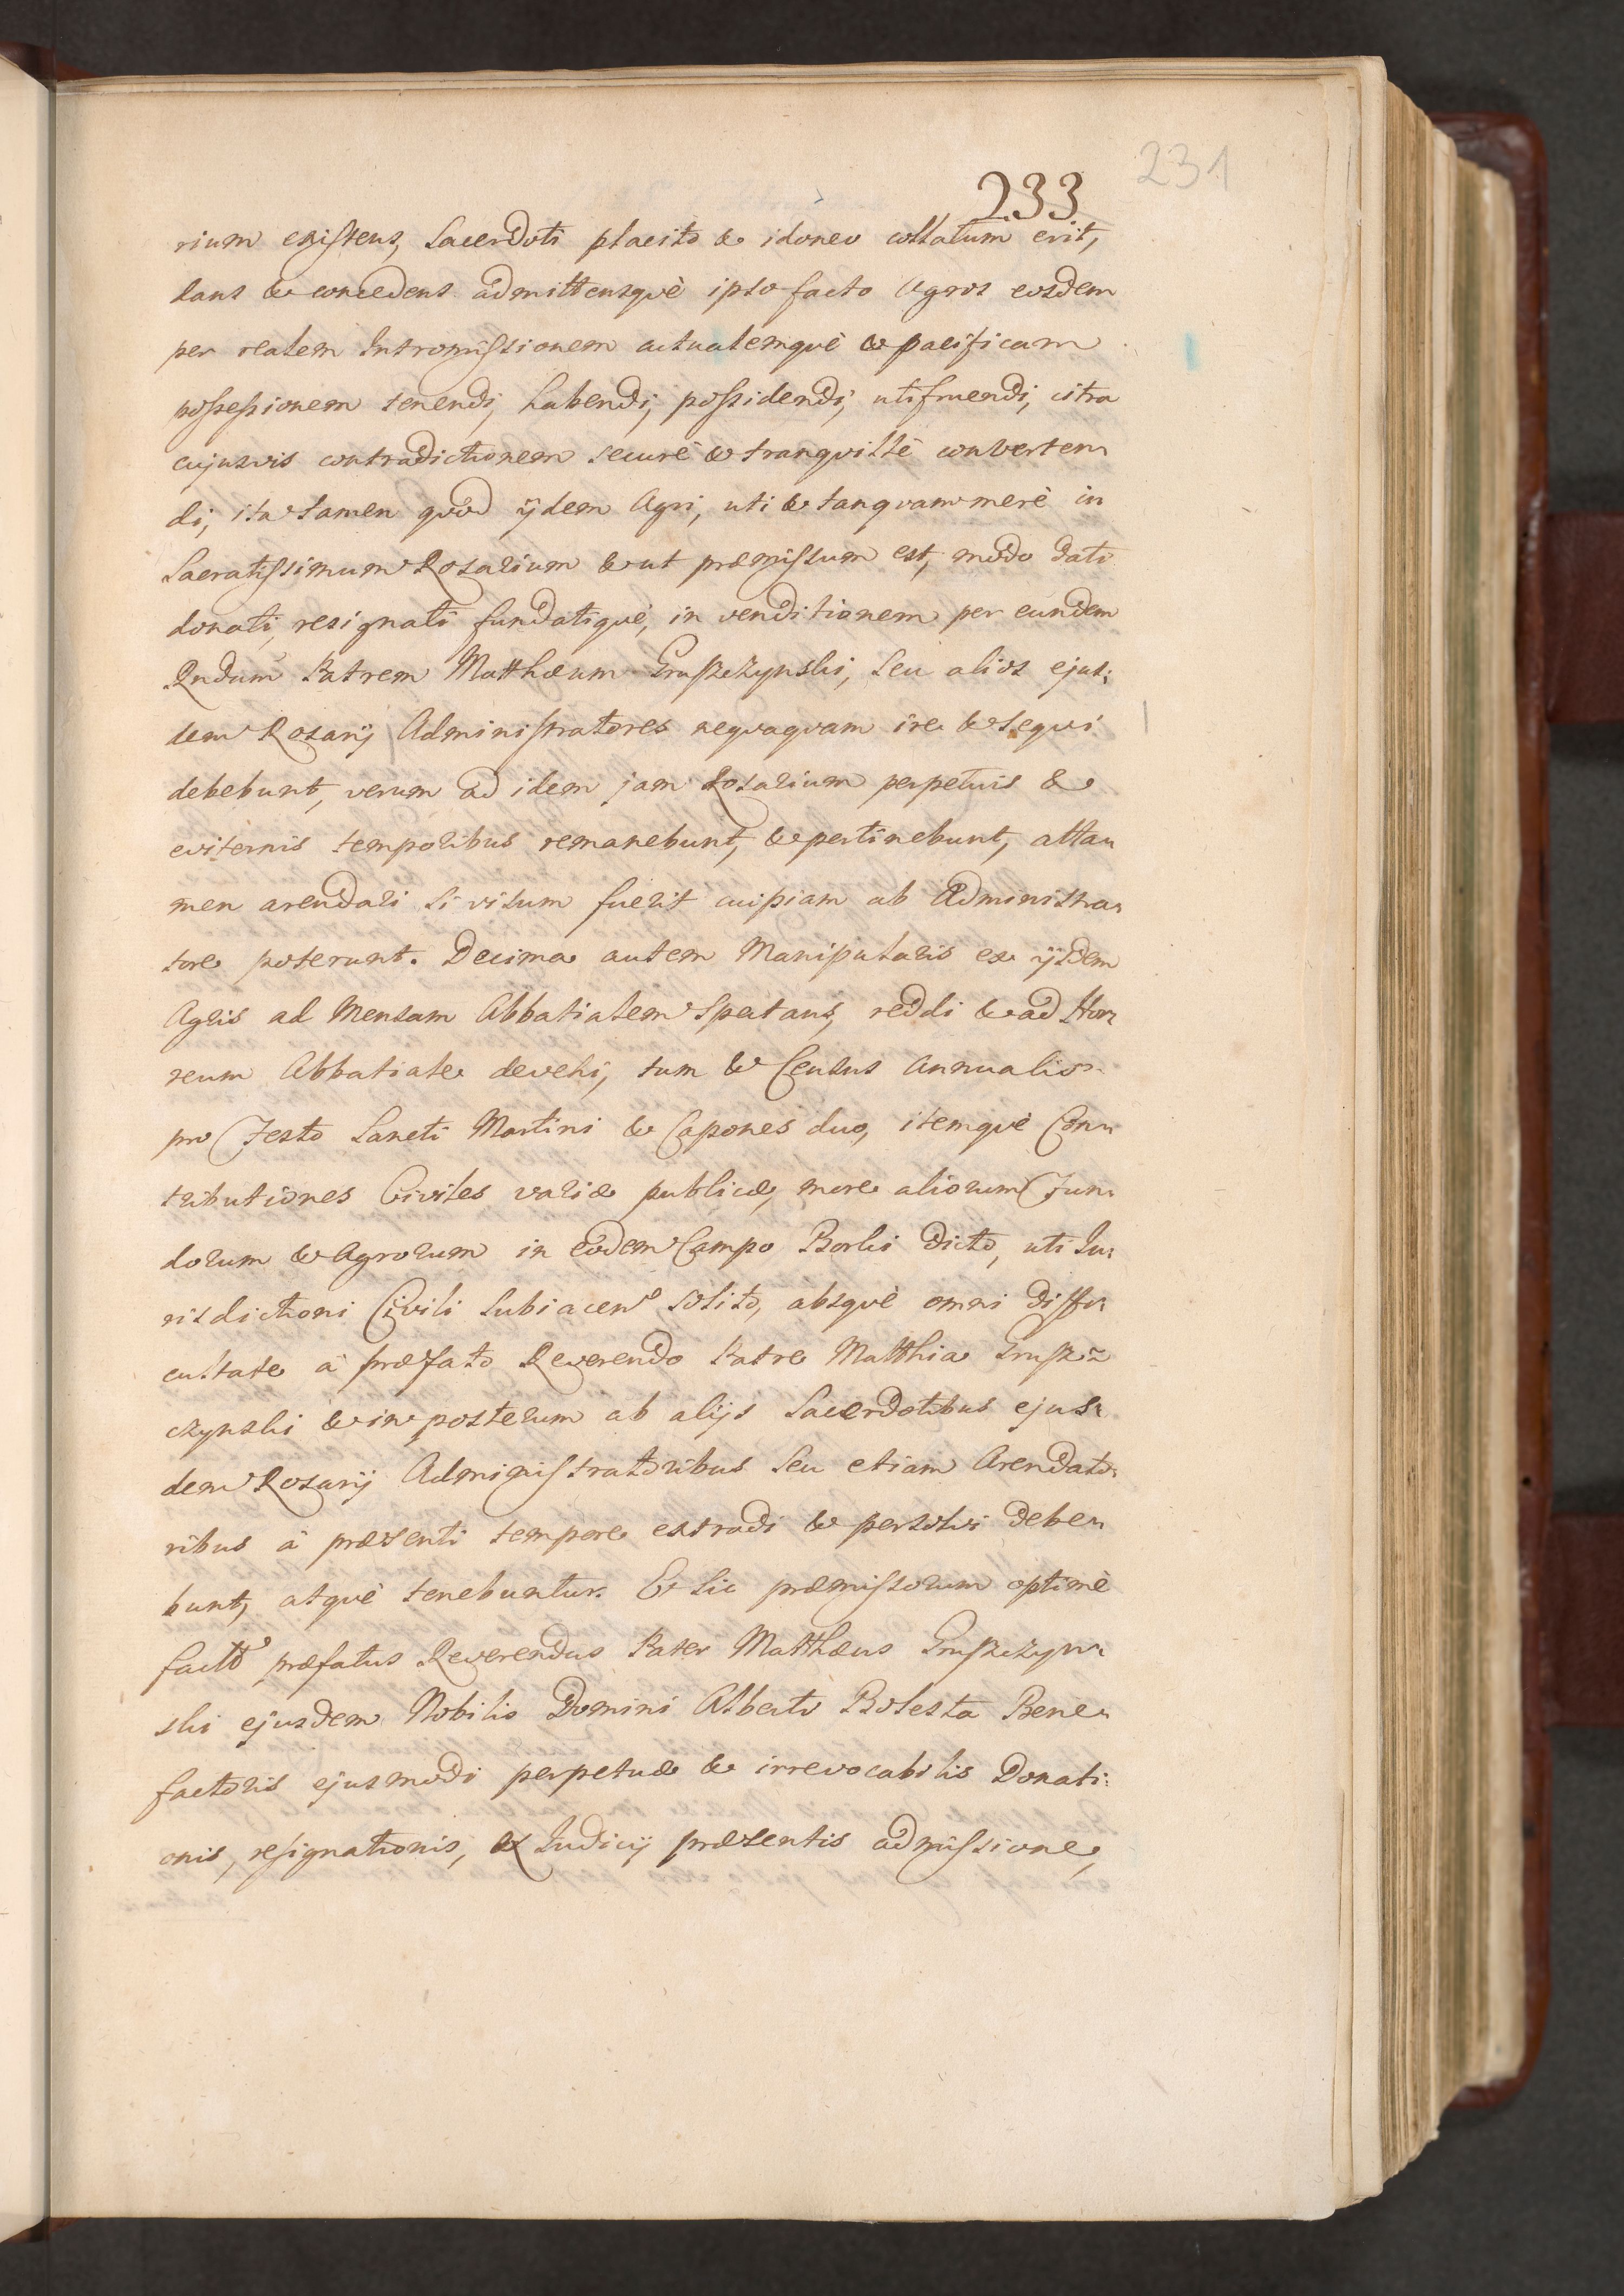 231
233.
rium existens, Sacerdoti placito & idoneo collatum erit,
dans & concedens admittensquè ipso facto Agros eosdem
per realem Intromissionem actualemquè & pacificam
possessionem tenendi, habendi, possidendi, utifruendi, citra
cujusvis contradictionem securè & tranquillè converten„
di, ita tamen quod ijdem Agri, uti & tanqvam merè in
Sacratissimum Rosarium & ut præmissum est, modo dati
donati, resignati fundatiquè, in venditionem per eundem
Rndum Patrem Matthæum Gruszczynski, seu alios ejus:
dem Rosarij Administratores neqvaqvam ire & seqvi
debebunt, verum ad idem jam Rosarium perpetuis &
eviternis temporibus remanebunt, & pertinebunt, atta„
men arendari si visum fuerit cuipiam ab Administra„
tore poterunt. Decima autem Manipularis ex ijsdem
Agris ad Mensam Abbatialem spectans, reddi & ad Hor„
reum Abbatiale devehi, tum & Census Annualis
pro Festo Sancti Martini & Capones duo, itemquè Con„
tributiones Civiles variæ publicæ, more aliorum Fun„
dorum & Agrorum in eodem Campo Borki dicto, uti Iu„
risdictioni Civili subiacen solito, absquè omni diffi„
cultate à præfato Reverendo Patre Matthia Grusz„
czynski & in posterum ab alijs Sacerdotibus ejus„
dem Rosarij Administratoribus seu etiam Arendato„
ribus à præsenti tempore extradi & persolvi debe„
bunt, atquè tenebuntur. Et sic præmissorum optimè
factô præfatus Reverendus Pater Matthæus Gruszczyn„
ski ejusdem Nobilis Domini Alberti Bolesta Bene„
factoris ejusmodi perpetuæ & irrevocabilis Donati:
onis, resignationis, & Iudicij præsentis admissione,